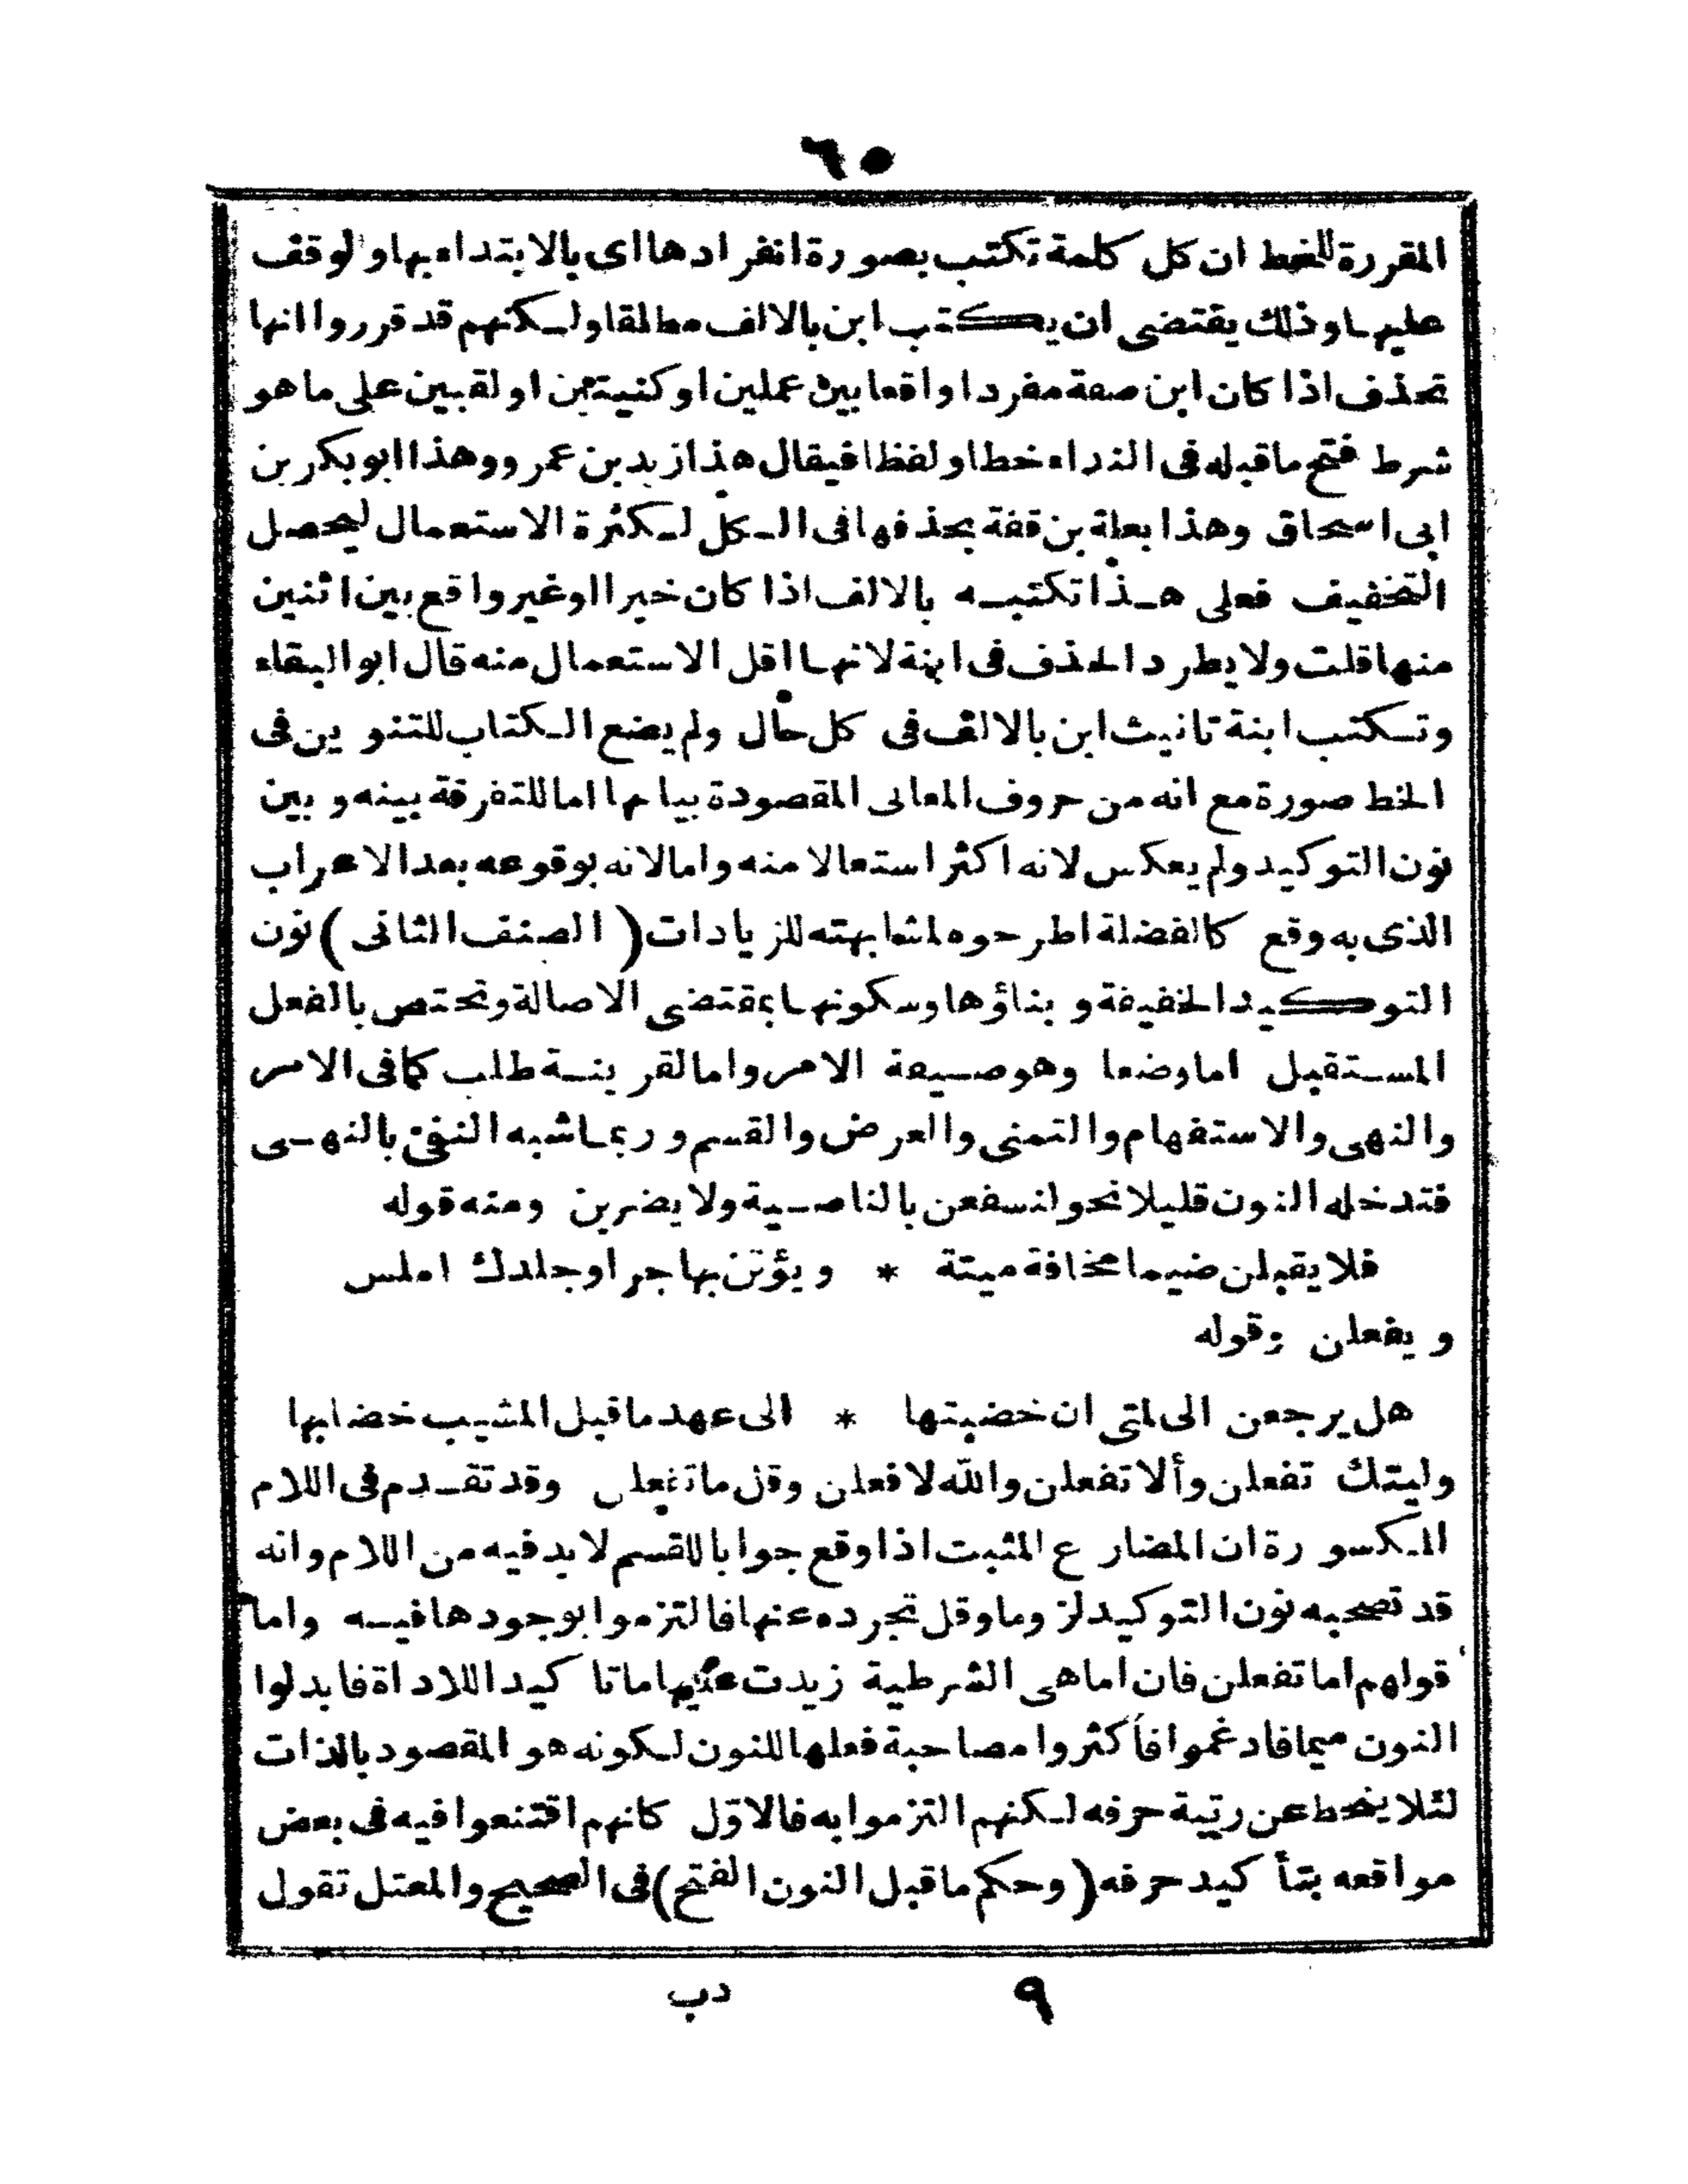 ٦٥
المقررة للخط ان كل كلمة تكتب بصورة انفرادها اى بالابتداء بها والوقف
عليها وذلك يقتضى ان يكتب ابن بالالف مطلقا ولكنهم قد قرروا انها
تحذف اذا كان ابن صفة مفردا واقعا بين علمين او كنيتين او لقبين على ما هو
شرط فتح ما قبله فى النداء خطا ولفظا فيقال هذا زيد بن عمرو وهذا ابو بكر بن
ابى اسحاق وهذا بطة بن قفة بحذفها فى الكل لكثرة الاستعمال ليحصل
التخفيف فعلى هذا تكتبه بالالف اذا كان خبرا او غير واقع بين اثنين
منها قلت ولا يطرد الحذف فى ابنة لانها اقل الاستعمال منه قال ابو البقاء
وتكتب ابنة تانيث ابن بالالف فى كل حال ولم يضع الكتاب للتنوين فى
الخط صورة مع انه من حروف المعانى المقصودة بيانها اما للتفرقة بينه وبين
نون التوكيد ولم يعكس لانه اكثر استعمالا منه واما لانه بوقوعه بعد الاعراب
الذى به وقع كالفضلة اطرحوه لمشابهته للزيادات (الصنف الثانى) نون
التوكيد الخفيفة وبناؤها وسكونها بمقتضى الاصالة وتختص بالفعل
المستقبل اما وضعا وهو صيغة الامر واما لقرينة طلب كما فى الامر
والنهى والاستفهام والتمنى والعرض والقسم وربما شبه النفى بالنهى
فتدخله النون قليلا نحو لنسفعن بالناصية ولا يضربن ومنه قوله
فلا يقبلن ضيما مخافة ميتة * ويؤتن بها حرا وجلدك املس
ويفعلن وقوله
هل يرجعن الى لمتى ان خضبتها * الى عهد ما قبل المشيب خضابها
وليتك تفعلن وألا تفعلن والله لافعلن وقل ما تفعلن وقد تقدم فى اللام
المكسورة ان المضارع المثبت اذا وقع جوابا للقسم لا بد فيه من اللام وانه
قد تصحبه نون التوكيد لزوما وقل تجرده عنها فالتزموا بوجودها فيه واما
قولهم اما تفعلن فان اما هى الشرطية زيدت عليها ما تاكيدا للاداة فابدلوا
النون ميما فادغموا فأكثروا مصاحبة فعلها للنون لكونه هو المقصود بالذات
لئلا ينحط عن رتبة حرفه لكنهم التزموا به فالاول كانهم اقتنعوا فيه فى بعض
مواقعه بتأكيد حرفه (وحكم ما قبل النون الفتح) فى الصحيح والمعتل تقول
٩ دب